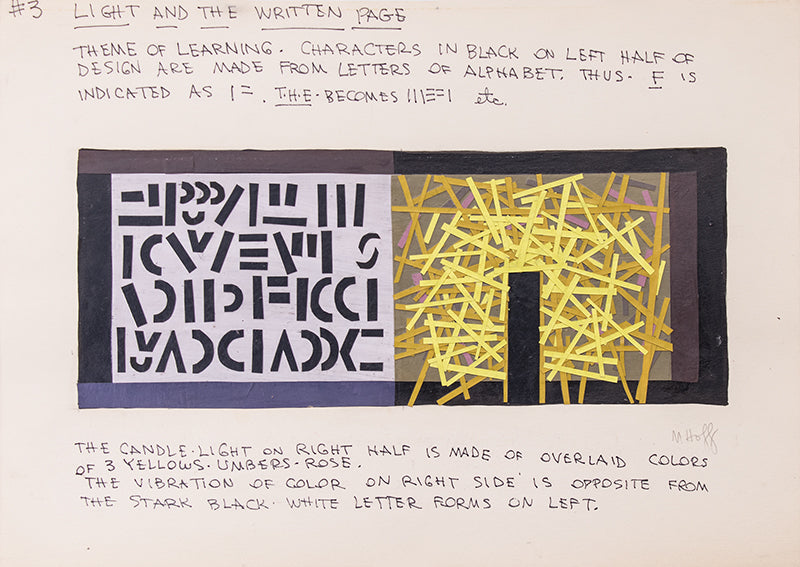 #3 LIGHT AND THE WRITTEN PAGE
THEME OF LEARNING. CHARACTERS IN BLACK ON LEFT HALF OF
DESIGN ARE MADE FROM LETTERS OF ALPHABET. THUS. F IS
INDICATED AS I=. T.H.E. BECOMES |||≡=| etc.
M Hoff
THE CANDLE-LIGHT ON RIGHT HALF IS MADE OF OVERLAID COLORS
OF 3 YELLOWS. UMBERS. ROSE.
THE VIBRATION OF COLOR ON RIGHT SIDE IS OPPOSITE FROM
THE STARK BLACK. WHITE LETTER FORMS ON LEFT.